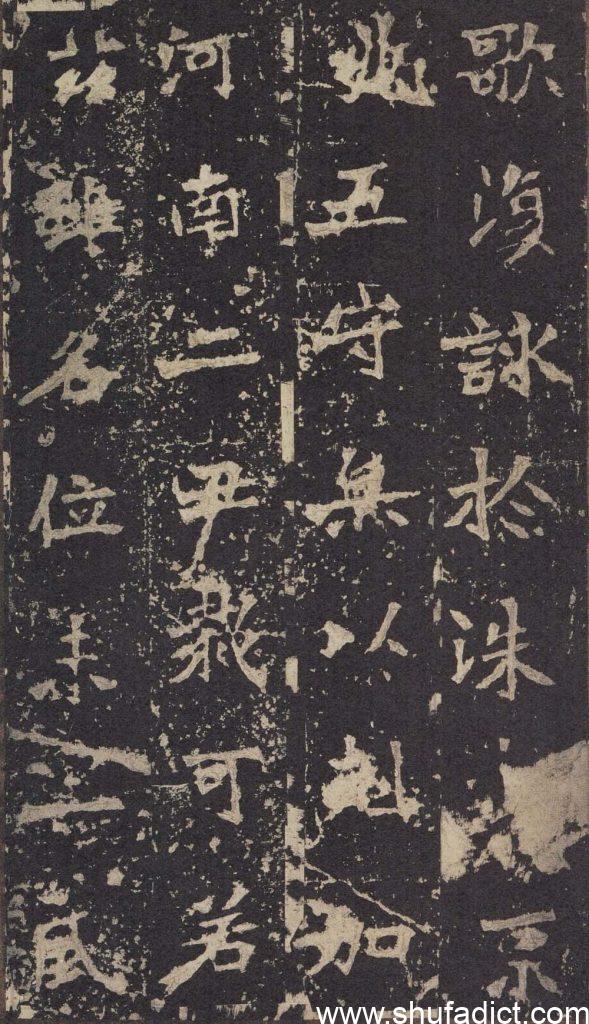 歌復詠於洙京
兆五守無以尅加
河南二尹裁可若
茲雖名位未一風
www.shufadict.com